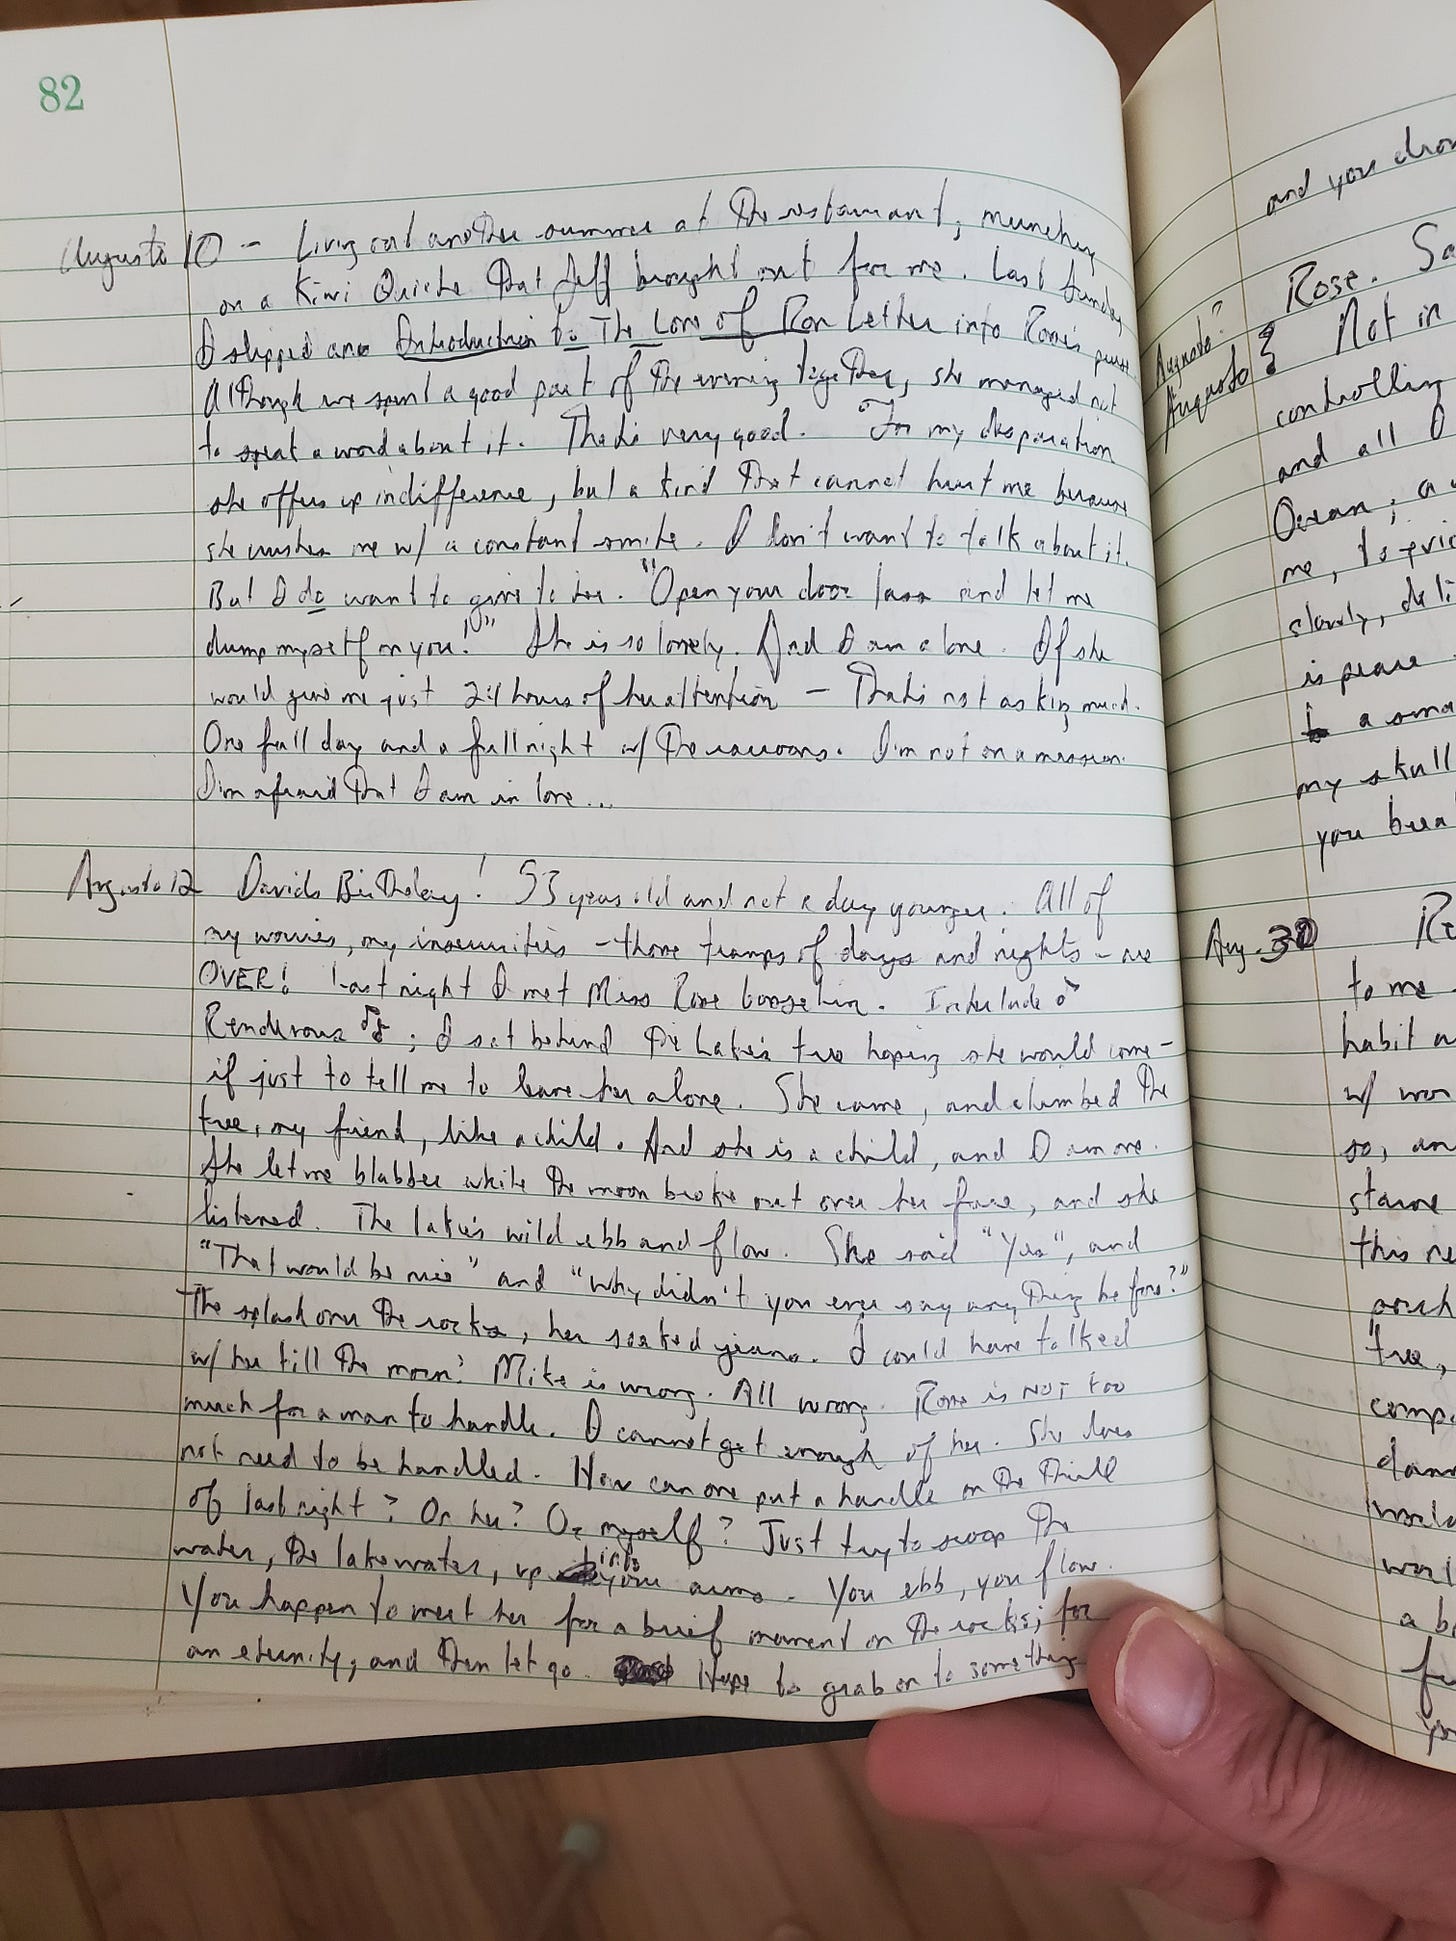 82
Augusto 10 - Living out another summer at the restaurant, munching
on a Kiwi Quiche that Jeff brought out for me. Last Sunday
I slipped an Introduction to The Love of Ron Letter into Rose's purse.
Although we spent a good part of the evening together, she managed not
to speak a word about it. That's very good. For my desperation
she offers up indifference, but a kind that cannot hurt me because
she crushes me w/ a constant smile. I don't want to talk about it.
But I do want to give to her. "Open your door lass and let me
dump myself on you!" She is so lonely. And I am alone. If she
would give me just 24 hours of her attention - That's not asking much.
One full day and a full night w/ the racoons. I'm not on a mission.
I'm afraid that I am in love...
Augusto 12 Davids Birthday! 53 years old and not a day younger. All of
my worries, my insecurities - those tramps of days and nights - are
OVER! Last night I met Miss Rose. Interlude
; I sat behind the Lake's tree hoping she would come -
if just to tell me to leave her alone. She came, and climbed the
tree, my friend, like a child. And she is a child, and I am one.
She let me blabber while the moon broke out over her face, and she
listened. The lake's wild ebb and flow. She said "Yes", and
"That would be nice" and "Why didn't you ever say anything before?"
The splash over the rocks, her soaked jeans. I could have talked
w/ her till the moon! Mike is wrong. All wrong. Rose is NOT too
much for a man to handle. I cannot get enough of her. She does
not need to be handled. How can one put a handle on the thrill
of last night? Or her? Or myself? Just try to scoop the
water, the lakewater, up into your arms. You ebb, you flow.
You happen to meet her for a brief moment on the rocks; for
an eternity, and then let go. Hope to grab on to something
and you
Rose.
Augusto?
Augusto } Not in
controlling
and all I
Ocean; a
me, to
slowly,
is peace
to a
my skull
you
Aug. 30
to me
habit
w/
so, an
starve
this
tree,
a